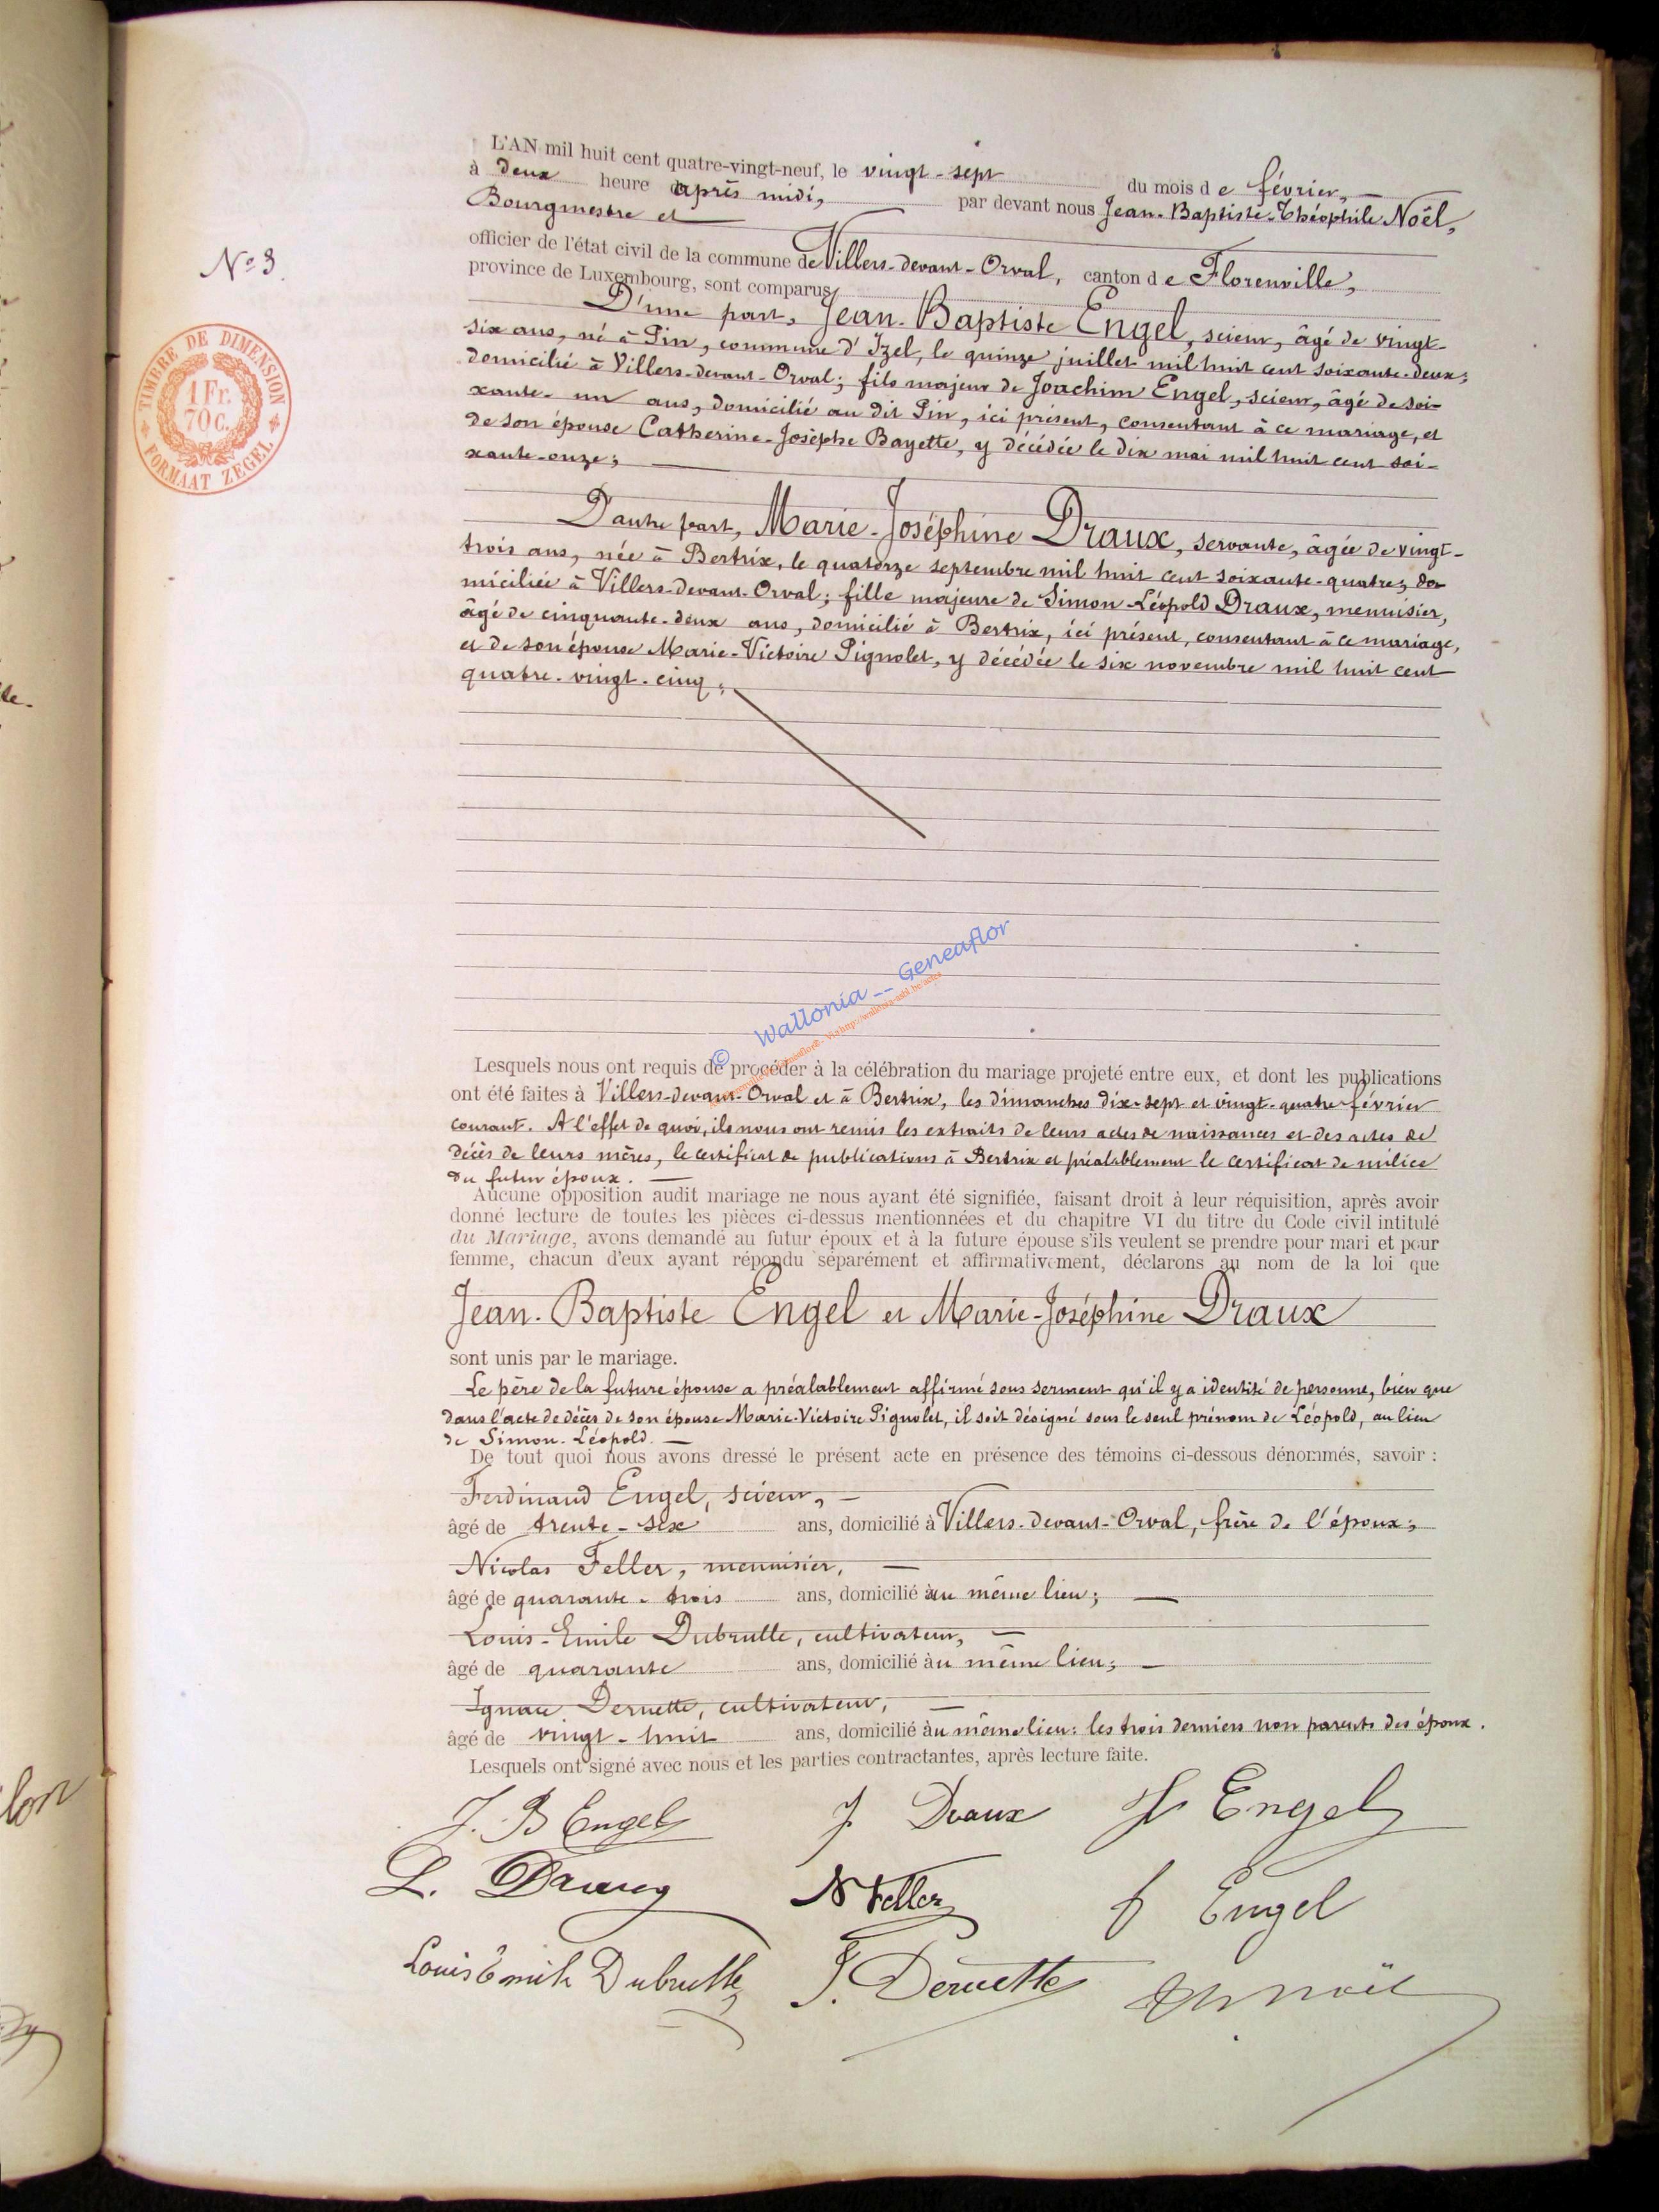 L'AN mil huit cent quatre-vingt-neuf, le vingt-sept du mois de février,
à deux heure après midi, par devant nous Jean-Baptiste-Théophile Noël,
Bourgmestre et
officier de l'état civil de la commune de Villers-devant-Orval, canton de Florenville,
province de Luxembourg, sont comparus
N° 3.
TIMBRE DE DIMENSION
1 Fr.
70 C.
FORMAAT ZEGEL
D'une part, Jean-Baptiste Engel, scieur, âgé de vingt-
six ans, né à Pin, commune d'Izel, le quinze juillet mil huit cent soixante-deux;
domicilié à Villers-devant-Orval; fils majeur de Joachim Engel, scieur, âgé de soi-
xante-un ans, domicilié au dit Pin, ici présent, consentant à ce mariage, et
de son épouse Catherine-Josèphe Bayette, y décédée le dix mai mil huit cent soi-
xante-onze;
D'autre part, Marie-Joséphine Draux, servante, âgée de vingt-
trois ans, née à Bertrix, le quatorze septembre mil huit cent soixante-quatre; do-
miciliée à Villers-devant-Orval; fille majeure de Simon-Léopold Draux, menuisier,
âgé de cinquante-deux ans, domicilié à Bertrix, ici présent, consentant à ce mariage,
et de son épouse Marie-Victoire Pignolet, y décédée le six novembre mil huit cent
quatre-vingt-cinq;
© Wallonia -- Geneaflor
Lesquels nous ont requis de procéder à la célébration du mariage projeté entre eux, et dont les publications
ont été faites à Villers-devant-Orval et à Bertrix, les dimanches dix-sept et vingt-quatre février
courant. A l'effet de quoi, ils nous ont remis les extraits de leurs actes de naissances et des actes de
décès de leurs mères, le certificat de publications à Bertrix et préalablement le certificat de milice
du futur époux.
Aucune opposition audit mariage ne nous ayant été signifiée, faisant droit à leur réquisition, après avoir
donné lecture de toutes les pièces ci-dessus mentionnées et du chapitre VI du titre du Code civil intitulé
du Mariage, avons demandé au futur époux et à la future épouse s'ils veulent se prendre pour mari et pour
femme, chacun d'eux ayant répondu séparément et affirmativement, déclarons au nom de la loi que
Jean-Baptiste Engel et Marie-Joséphine Draux
sont unis par le mariage.
Le père de la future épouse a préalablement affirmé sous serment qu'il y a identité de personne, bien que
dans l'acte de décès de son épouse Marie-Victoire Pignolet, il soit désigné sous le seul prénom de Léopold, au lieu
de Simon-Léopold.
De tout quoi nous avons dressé le présent acte en présence des témoins ci-dessous dénommés, savoir :
Ferdinand Engel, scieur,
âgé de trente-six ans, domicilié à Villers-devant-Orval, frère de l'époux;
Nicolas Feller, menuisier,
âgé de quarante-trois ans, domicilié au même lieu;
Louis-Emile Dubrulle, cultivateur,
âgé de quarante ans, domicilié au même lieu;
Ignace Deruette, cultivateur,
âgé de vingt-huit ans, domicilié au même lieu: les trois derniers non parents des époux.
Lesquels ont signé avec nous et les parties contractantes, après lecture faite.
J. B Engel J Draux Engel
L. Draux N Feller f Engel
Louis Emile Dubrulle I. Deruette Th Noël